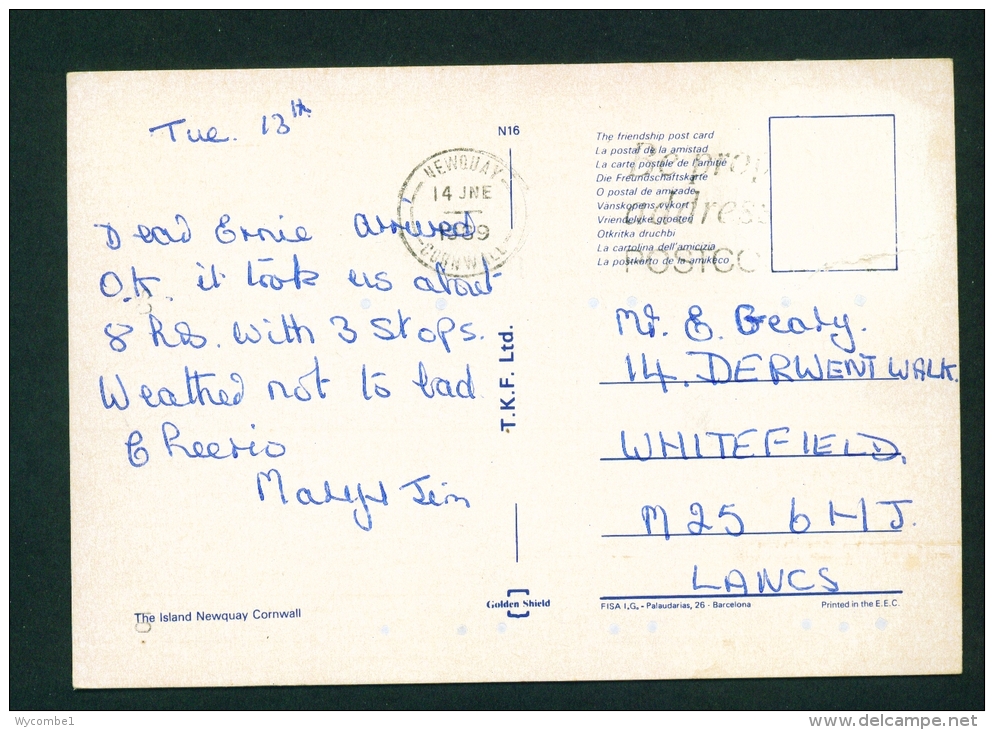 Tue. 13th
Dear Ernie arrived
O.K. it took us about
8 hrs. with 3 stops.
Weather not to bad
Cheerio
Jim
The Island Newquay Cornwall
N16
T.K.F. Ltd.
Golden Shield
NEWQUAY
14 JNE
1989
CORNWALL
Be prop
address
POSTCO
The friendship post card
La postal de la amistad
La carte postale de l'amitié
Die Freundschaftskarte
O postal de amizade
Vänskopens vykort
Vriendelyke groeten
Otkritka druchbi
La cartolina dell'amicizia
La postkarto de la amikeco
Mr. E. Gealy.
14. DERWENT WALK.
WHITEFIELD,
M25 6HJ.
LANCS
FISA I.G. - Palaudarias, 26 - Barcelona
Printed in the E.E.C.
Wycombe1
www.delcampe.net